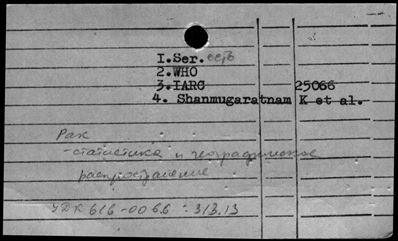 1. Ser. есть
2. WHO
3. IARC 25066
4. Shanmugaratnam K et al.
Рак
- статистика и географическое
распространение
УДК 616-006.6 : 313.13